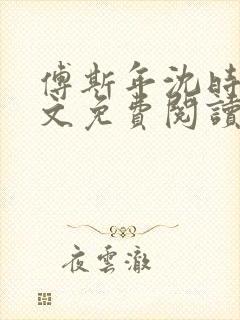 傅斯年沈時
文免費閱讀
夜雲澈